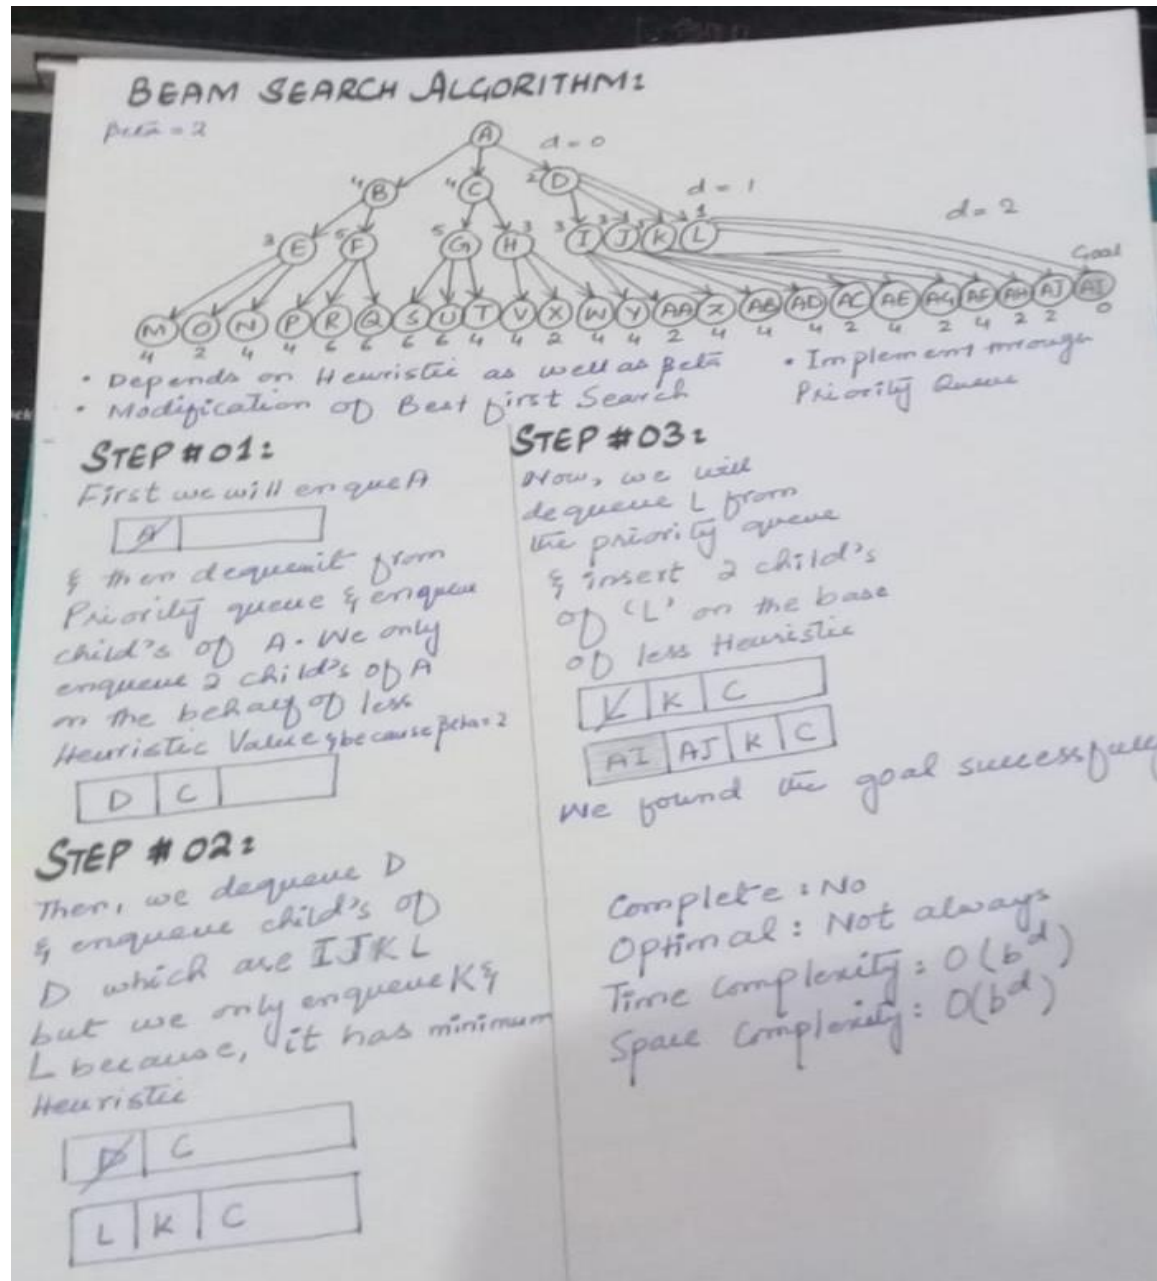 BEAM SEARCH ALGORITHM:
Beta = 2
A
d = 0
4 B
4 C
2 D
d = 1
3 E
5 F
5 G
3 H
3 I
3 J
K
1 L
d = 2
Goal
M O N P R Q S U T V X W Y AA Z AB AD AC AE AG AF AH AJ AI
4 2 4 4 6 6 6 6 4 4 2 4 4 2 4 4 4 2 4 2 4 2 2 0
• Depends on Heuristic as well as Beta
• Modification of Best first Search
• Implement through
Priority Queue
STEP #01:
First we will enque A
A
& then dequeueit from
Priority queue & enqueue
child's of A. We only
enqueue 2 child's of A
on the behalf of less
Heuristic Value & because Beta = 2
D C
STEP #02:
Then, we dequeue D
& enqueue child's of
D which are IJKL
but we only enqueue K &
L because, it has minimum
Heuristic
D C
L K C
STEP #03:
Now, we will
dequeue L from
the priority queue
& insert 2 child's
of 'L' on the base
of less Heuristic
L K C
AI AJ K C
We found the goal successfully
Complete : No
Optimal : Not always
Time Complexity : O(b^d)
Space Complexity : O(b^d)